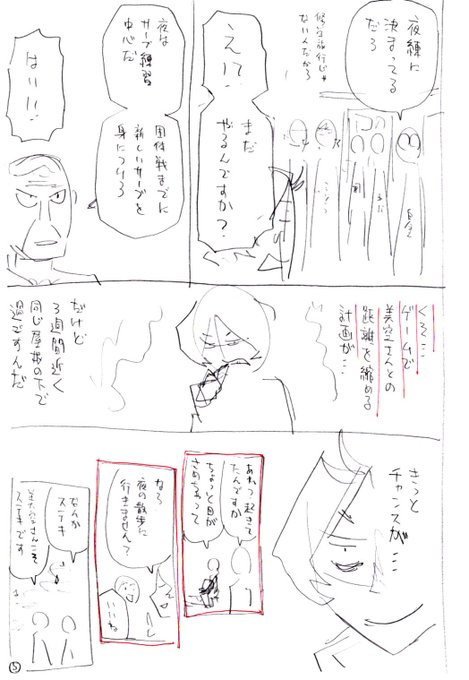 夜練に
決まってる
だろ
修学旅行じゃ
ないんだから
え!?
まだ
やるんですか?
夜は
サーブ練習
中心だ
団体戦までに
新しいサーブを
身につけろ
はい!!
くそ…
ゲームで
美空さんとの
距離を縮める
計画が…
だけど
3週間近く
同じ屋根の下で
過ごすんだ
きっと
チャンスが…
あれっ起きて
たんですか
ちょっと目が
さめちゃって
なら
夜の散歩に
行きません?
いいね
なんか
ステキ
美空さんこそ
ステキです
5